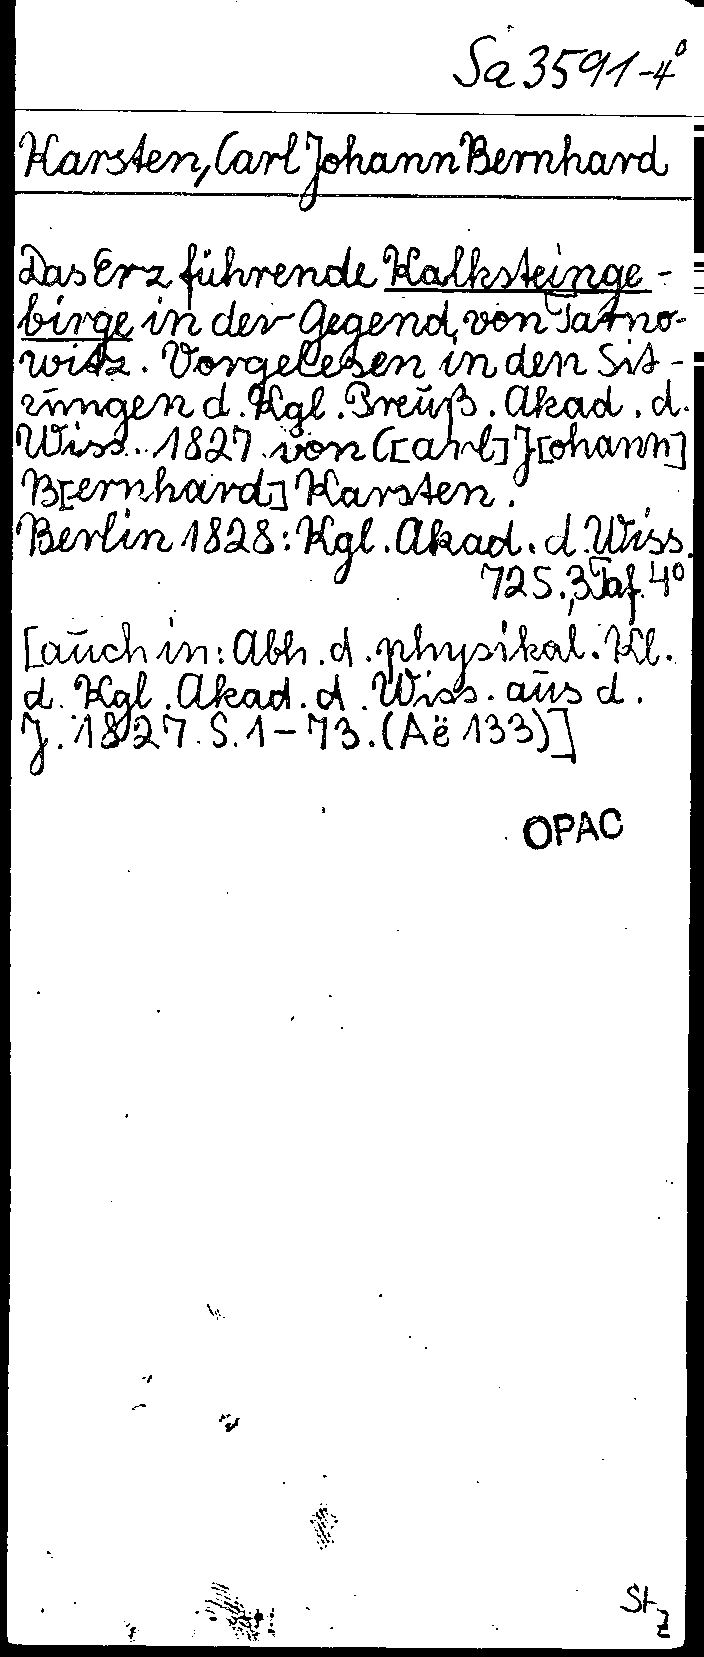 Sa 3591-4°
Karsten, Carl Johann Bernhard
Das Erz führende Kalksteinge-
birge in der Gegend von Tarno-
witz. Vorgelesen in den Sit-
zungen d. Kgl. Preuß. Akad. d.
Wiss. 1827 von C[arl] J[ohann]
B[ernhard] Karsten.
Berlin 1828: Kgl. Akad. d. Wiss.
72 S., 3 Taf. 4°
[auch in: Abh. d. physikal. Kl.
d. Kgl. Akad. d. Wiss. aus d.
J. 1827. S. 1-73. (Aë 133)]
OPAC